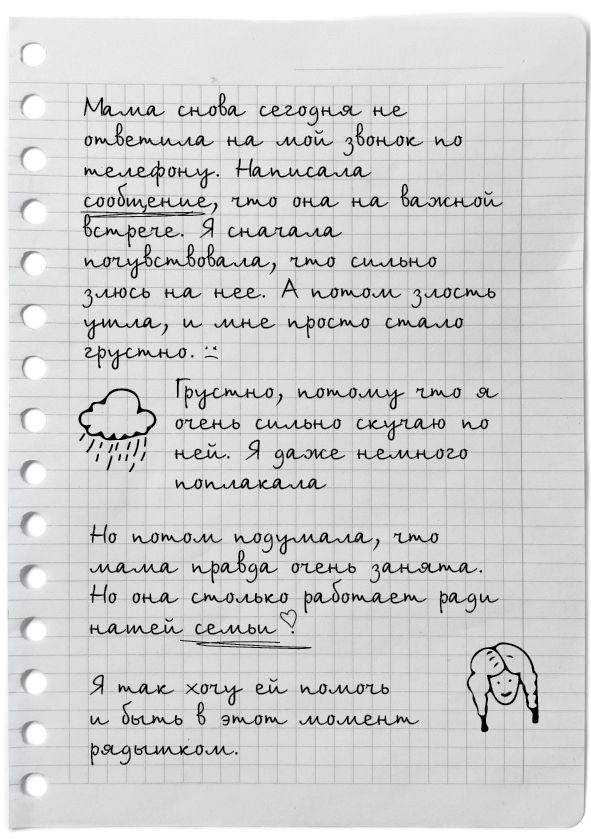 Мама снова сегодня не
ответила на мой звонок по
телефону. Написала
сообщение, что она на важной
встрече. Я сначала
почувствовала, что сильно
злюсь на нее. А потом злость
ушла, и мне просто стало
грустно. :(
Грустно, потому что я
очень сильно скучаю по
ней. Я даже немного
поплакала
Но потом подумала, что
мама правда очень занята.
Но она столько работает ради
нашей семьи!
Я так хочу ей помочь
и быть в этот момент
рядышком.